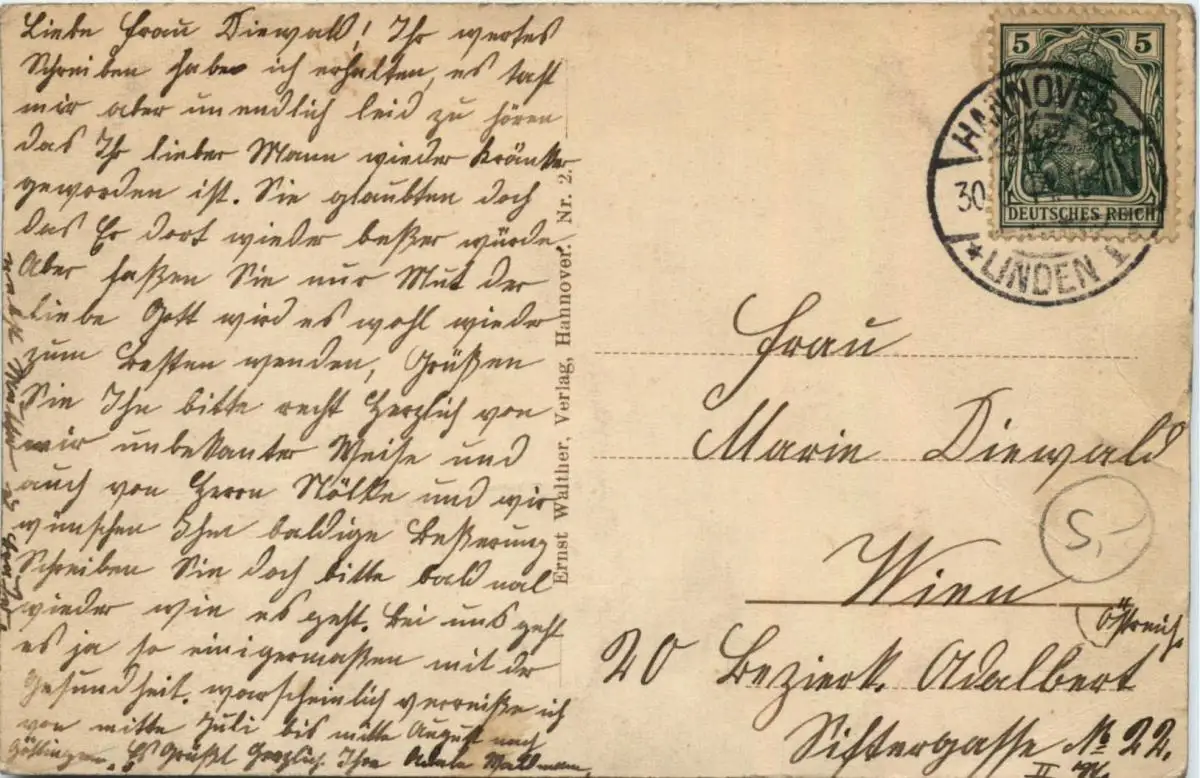 Liebe Frau Diewald! Ihr wertes
Schreiben habe ich erhalten, es taht
mir aber unendlich leid zu hören
das Ihr lieber Mann wieder kränker
geworden ist. Sie glaubten doch
das Er dort wieder beßer würde,
Aber faßen Sie nur Mut der
liebe Gott wird es wohl wieder
zum besten wenden, Grüßen
Sie Ihn bitte recht Herzlich von
mir unbekanter Weise und
auch von Herrn Nölke und wir
wünschen Ihm baldige Beßerung
Schreiben Sie doch bitte bald mal
wieder wie es geht. Bei uns geht
es ja so einigermaßen mit der
Gesundheit. warscheinlich verreiße ich
von mitte Juli bis mitte August nach
Göttingen. Es Grüßt Herzlich Ihre Adele
Ernst Walther, Verlag, Hannover. Nr. 2.
5 5
DEUTSCHES REICH
HANNOVER
30.
* LINDEN 1
Frau
Marie Diewald
S,-
Wien
(Östreich.
20 Bezierk. Adalbert
Stiftergasse No 22.
II